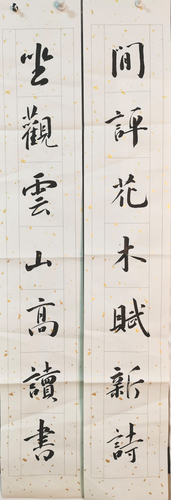 間評花木賦新詩
坐觀雲山高讀書